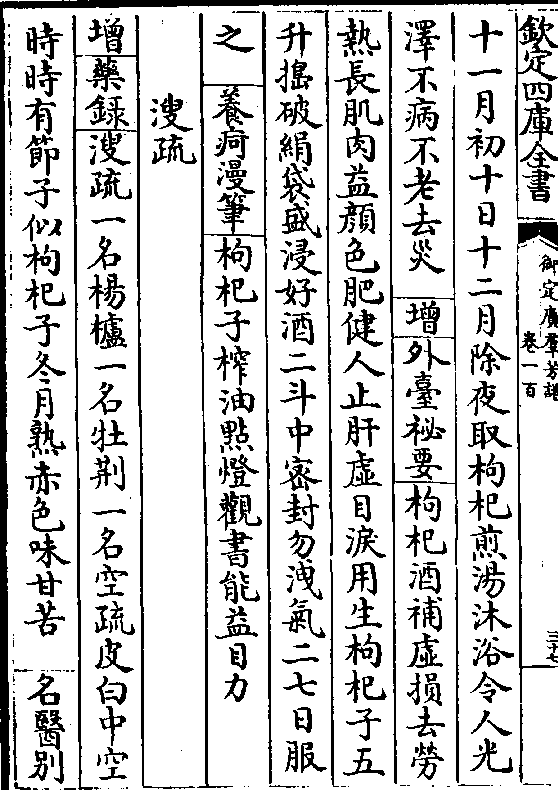 欽定四庫全書
御定廣羣芳譜
卷一百
三十七
十一月初十日十二月除夜取枸杞煎湯沐浴令人光
澤不病不老去災 增 外臺祕要 枸杞酒補虛損去勞
熱長肌肉益顔色肥健人止肝虛目淚用生枸杞子五
升搗破絹袋盛浸好酒二斗中密封勿洩氣二七日服
之 養疴漫筆 枸杞子榨油點燈觀書能益目力
溲疏
增 藥錄 溲疏一名楊櫨一名牡荆一名空疏皮白中空
時時有節子似枸杞子冬月熟赤色味甘苦 名醫別